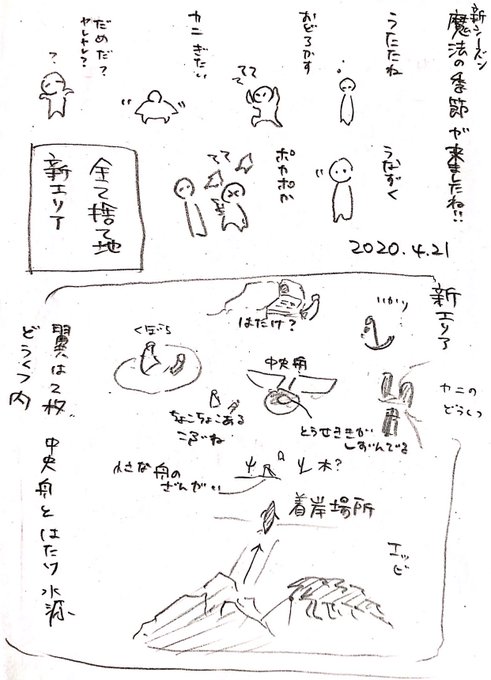 新シーズン
魔法の季節が来ましたね!!
うたたね
おどろかす
カニぎたい
だめだ?
ヤレヤレ?
うなずく
ててて
ポカポカ
ててて
2020.4.21
全て捨て地
新エリア
新エリア
いかり
はたけ?
くぼち
中央舟
カニの
どうくつ
とうせききが
しずんでる
ちょこちょこある
こぶね
小さな舟の
ざんがい
木?
着岸場所
エッビ
翼は2枚
中央舟とはたけ水源
どうくつ内